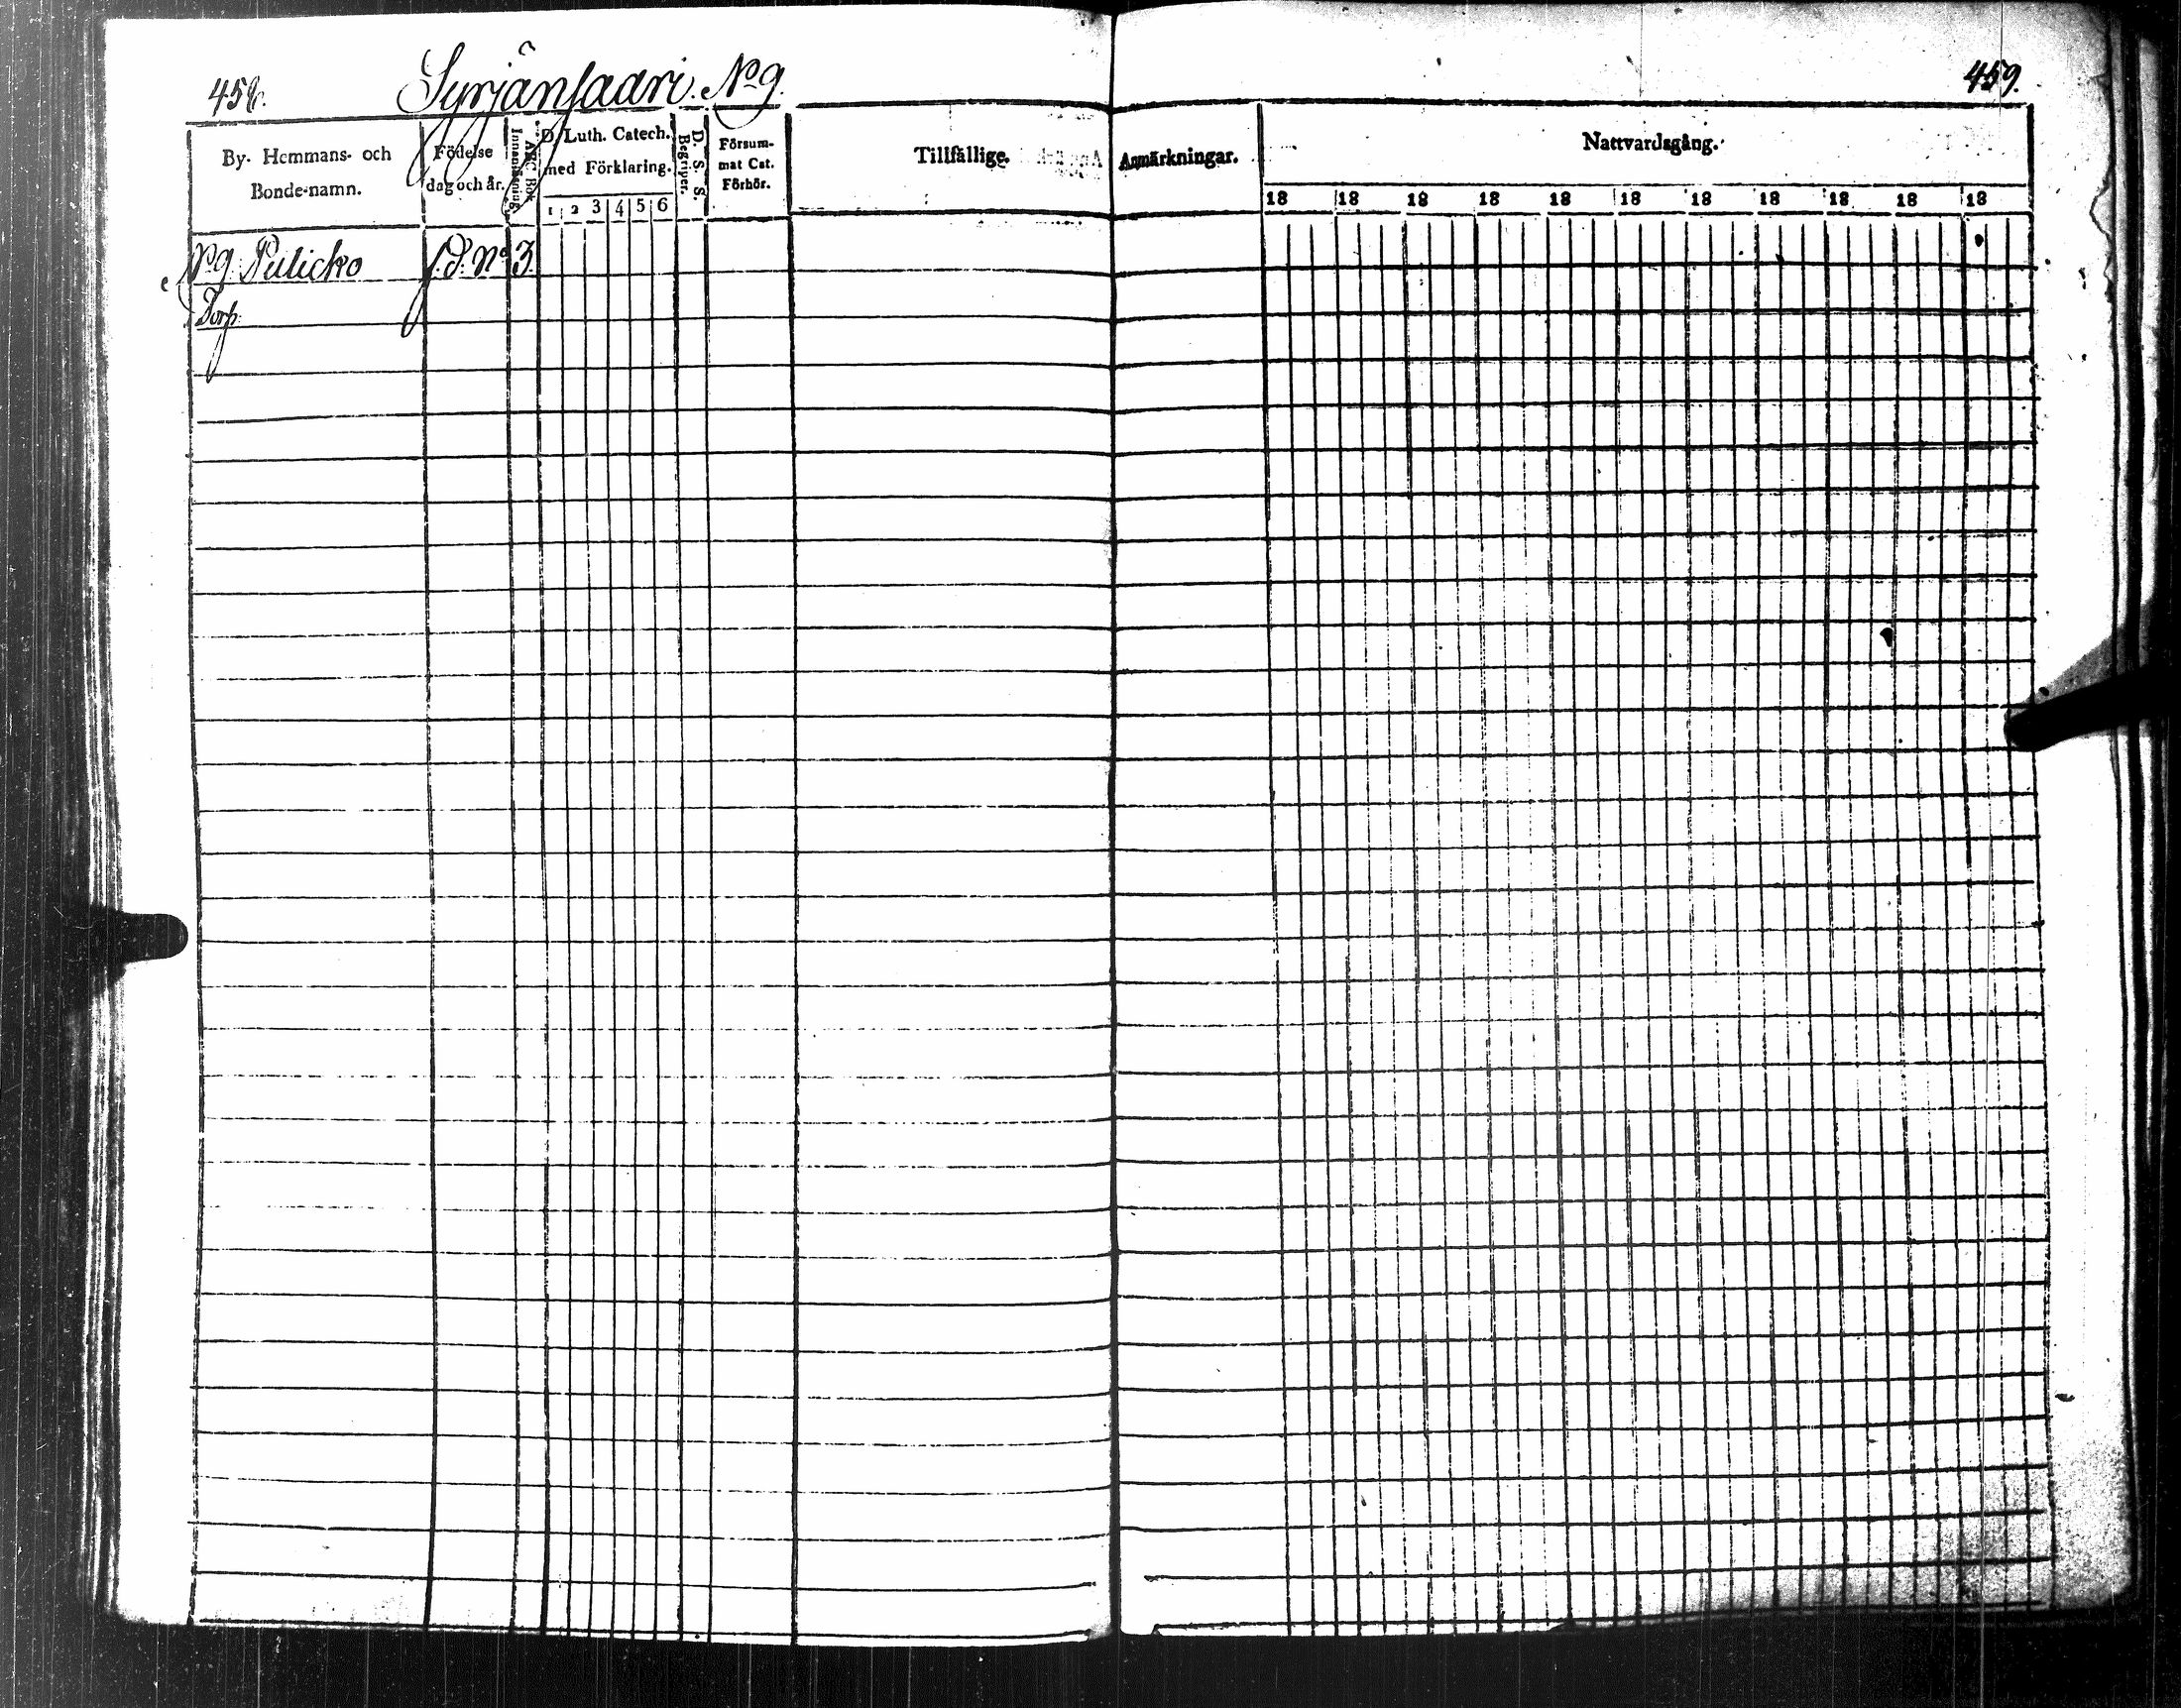 458.
Syrjänsaari. No 9.
459.
By- Hemmans- och
Bonde-namn.
Födelse
dag och år.
Innanläsning.
ABC Bok
D. Luth. Catech.
med Förklaring.
1 2 3 4 5 6
D. S. S.
Begriper.
Försum-
mat Cat.
Förhör.
Tillfällige
Anmärkningar.
Nattvardsgång.
18 18 18 18 18 18 18 18 18 18 18
No 9 Pulicko
No 3.
Torp.